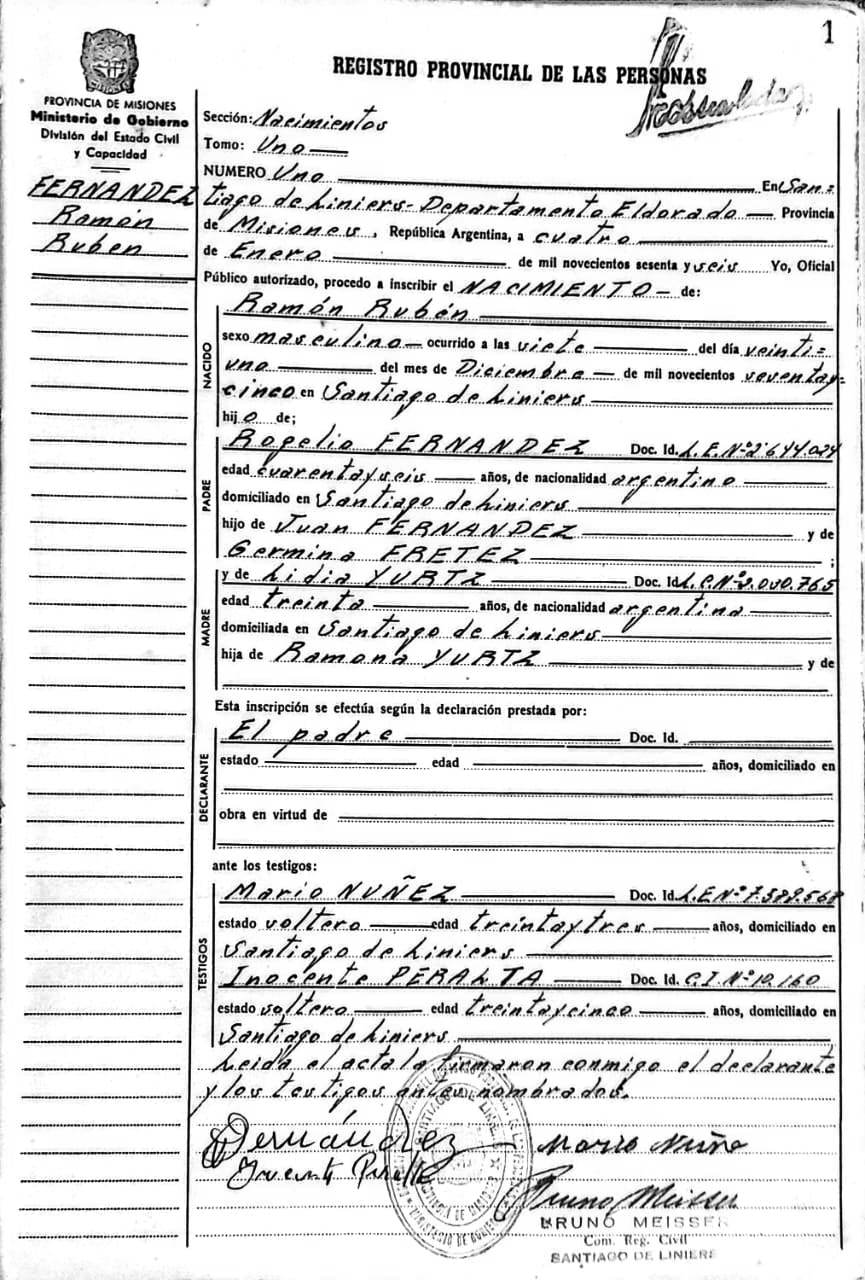 1
REGISTRO PROVINCIAL DE LAS PERSONAS
PROVINCIA DE MISIONES
Ministerio de Gobierno
División del Estado Civil
y Capacidad
FERNANDEZ
Ramón
Ruben
Sección: Nacimientos
Tomo: Uno
NUMERO Uno En San=
tiago de Liniers- Departamento Eldorado — Provincia
de Misiones, República Argentina, a cuatro
de Enero de mil novecientos sesenta y seis Yo, Oficial
Público autorizado, procedo a inscribir el NACIMIENTO — de:
NACIDO
Ramón Rubén
sexo masculino — ocurrido a las siete del día veinti=
uno del mes de Diciembre — de mil novecientos sesentay-
cinco en Santiago de Liniers
hijo de;
PADRE
Rogelio FERNANDEZ Doc. Id. L.E.Nº2.644.024
edad cuarentayseis años, de nacionalidad argentino
domiciliado en Santiago de Liniers
hijo de Juan FERNANDEZ y de
Germina ERETEZ ;
MADRE
y de Lidia YURTZ Doc. Id. L.C.Nº
edad treinta años, de nacionalidad argentina
domiciliada en Santiago de Liniers
hija de Ramona YURTZ y de
Esta inscripción se efectúa según la declaración prestada por:
DECLARANTE
El padre Doc. Id.
estado edad años, domiciliado en
obra en virtud de
ante los testigos:
TESTIGOS
Mario NUÑEZ Doc. Id. L.E Nº7.589.568
estado soltero edad treintaytres años, domiciliado en
Santiago de Liniers
Inocente PERALTA Doc. Id. C.I Nº10.160
estado soltero edad treintaycinco años, domiciliado en
Santiago de Liniers
Leida el acta la firmaron conmigo el declarante
y los testigos antes nombrados.
Fernández
Mario Nuñe
Bruno Meisser
BRUNO MEISSER
Com. Reg. Civil
SANTIAGO DE LINIERS